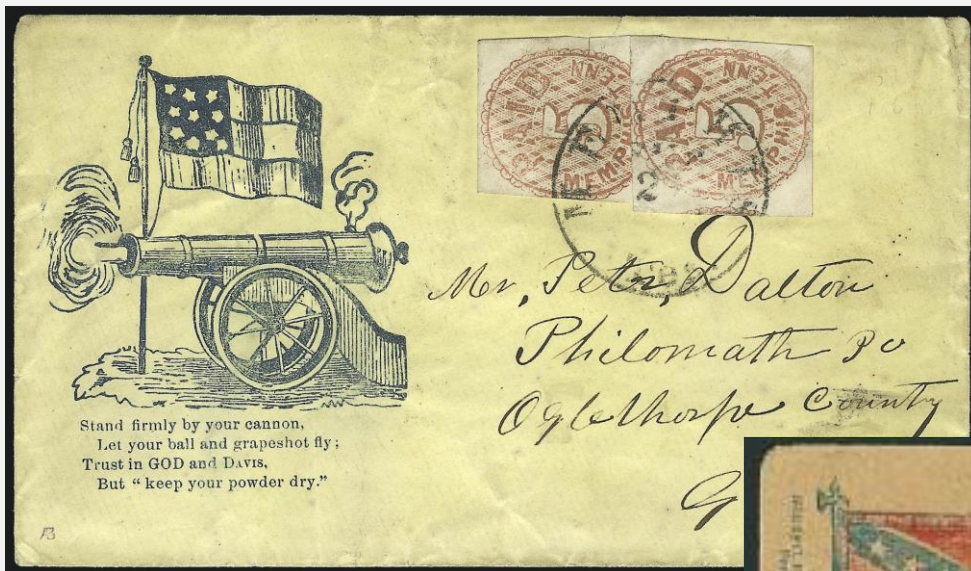 PAID 5 MEMPHIS TENN
PAID 5 MEMPHIS TENN
Mr, Peter, Dalton
Philomath PO
Oglethorpe County
G
Stand firmly by your cannon,
Let your ball and grapeshot fly;
Trust in GOD and DAVIS,
But "keep your powder dry."